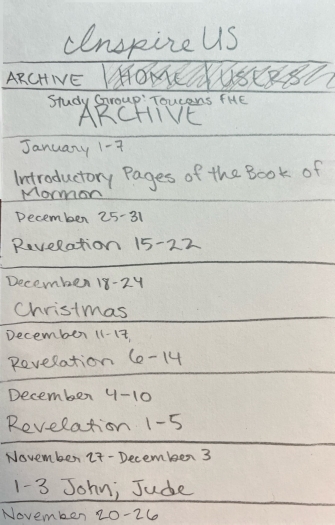 Inspire US
ARCHIVE HOME USERS
Study Group: Toucans FHE
ARCHIVE
January 1-7
Introductory Pages of the Book of
Mormon
December 25-31
Revelation 15-22
December 18-24
Christmas
December 11-17
Revelation 6-14
December 4-10
Revelation 1-5
November 27 - December 3
1-3 John; Jude
November 20-26